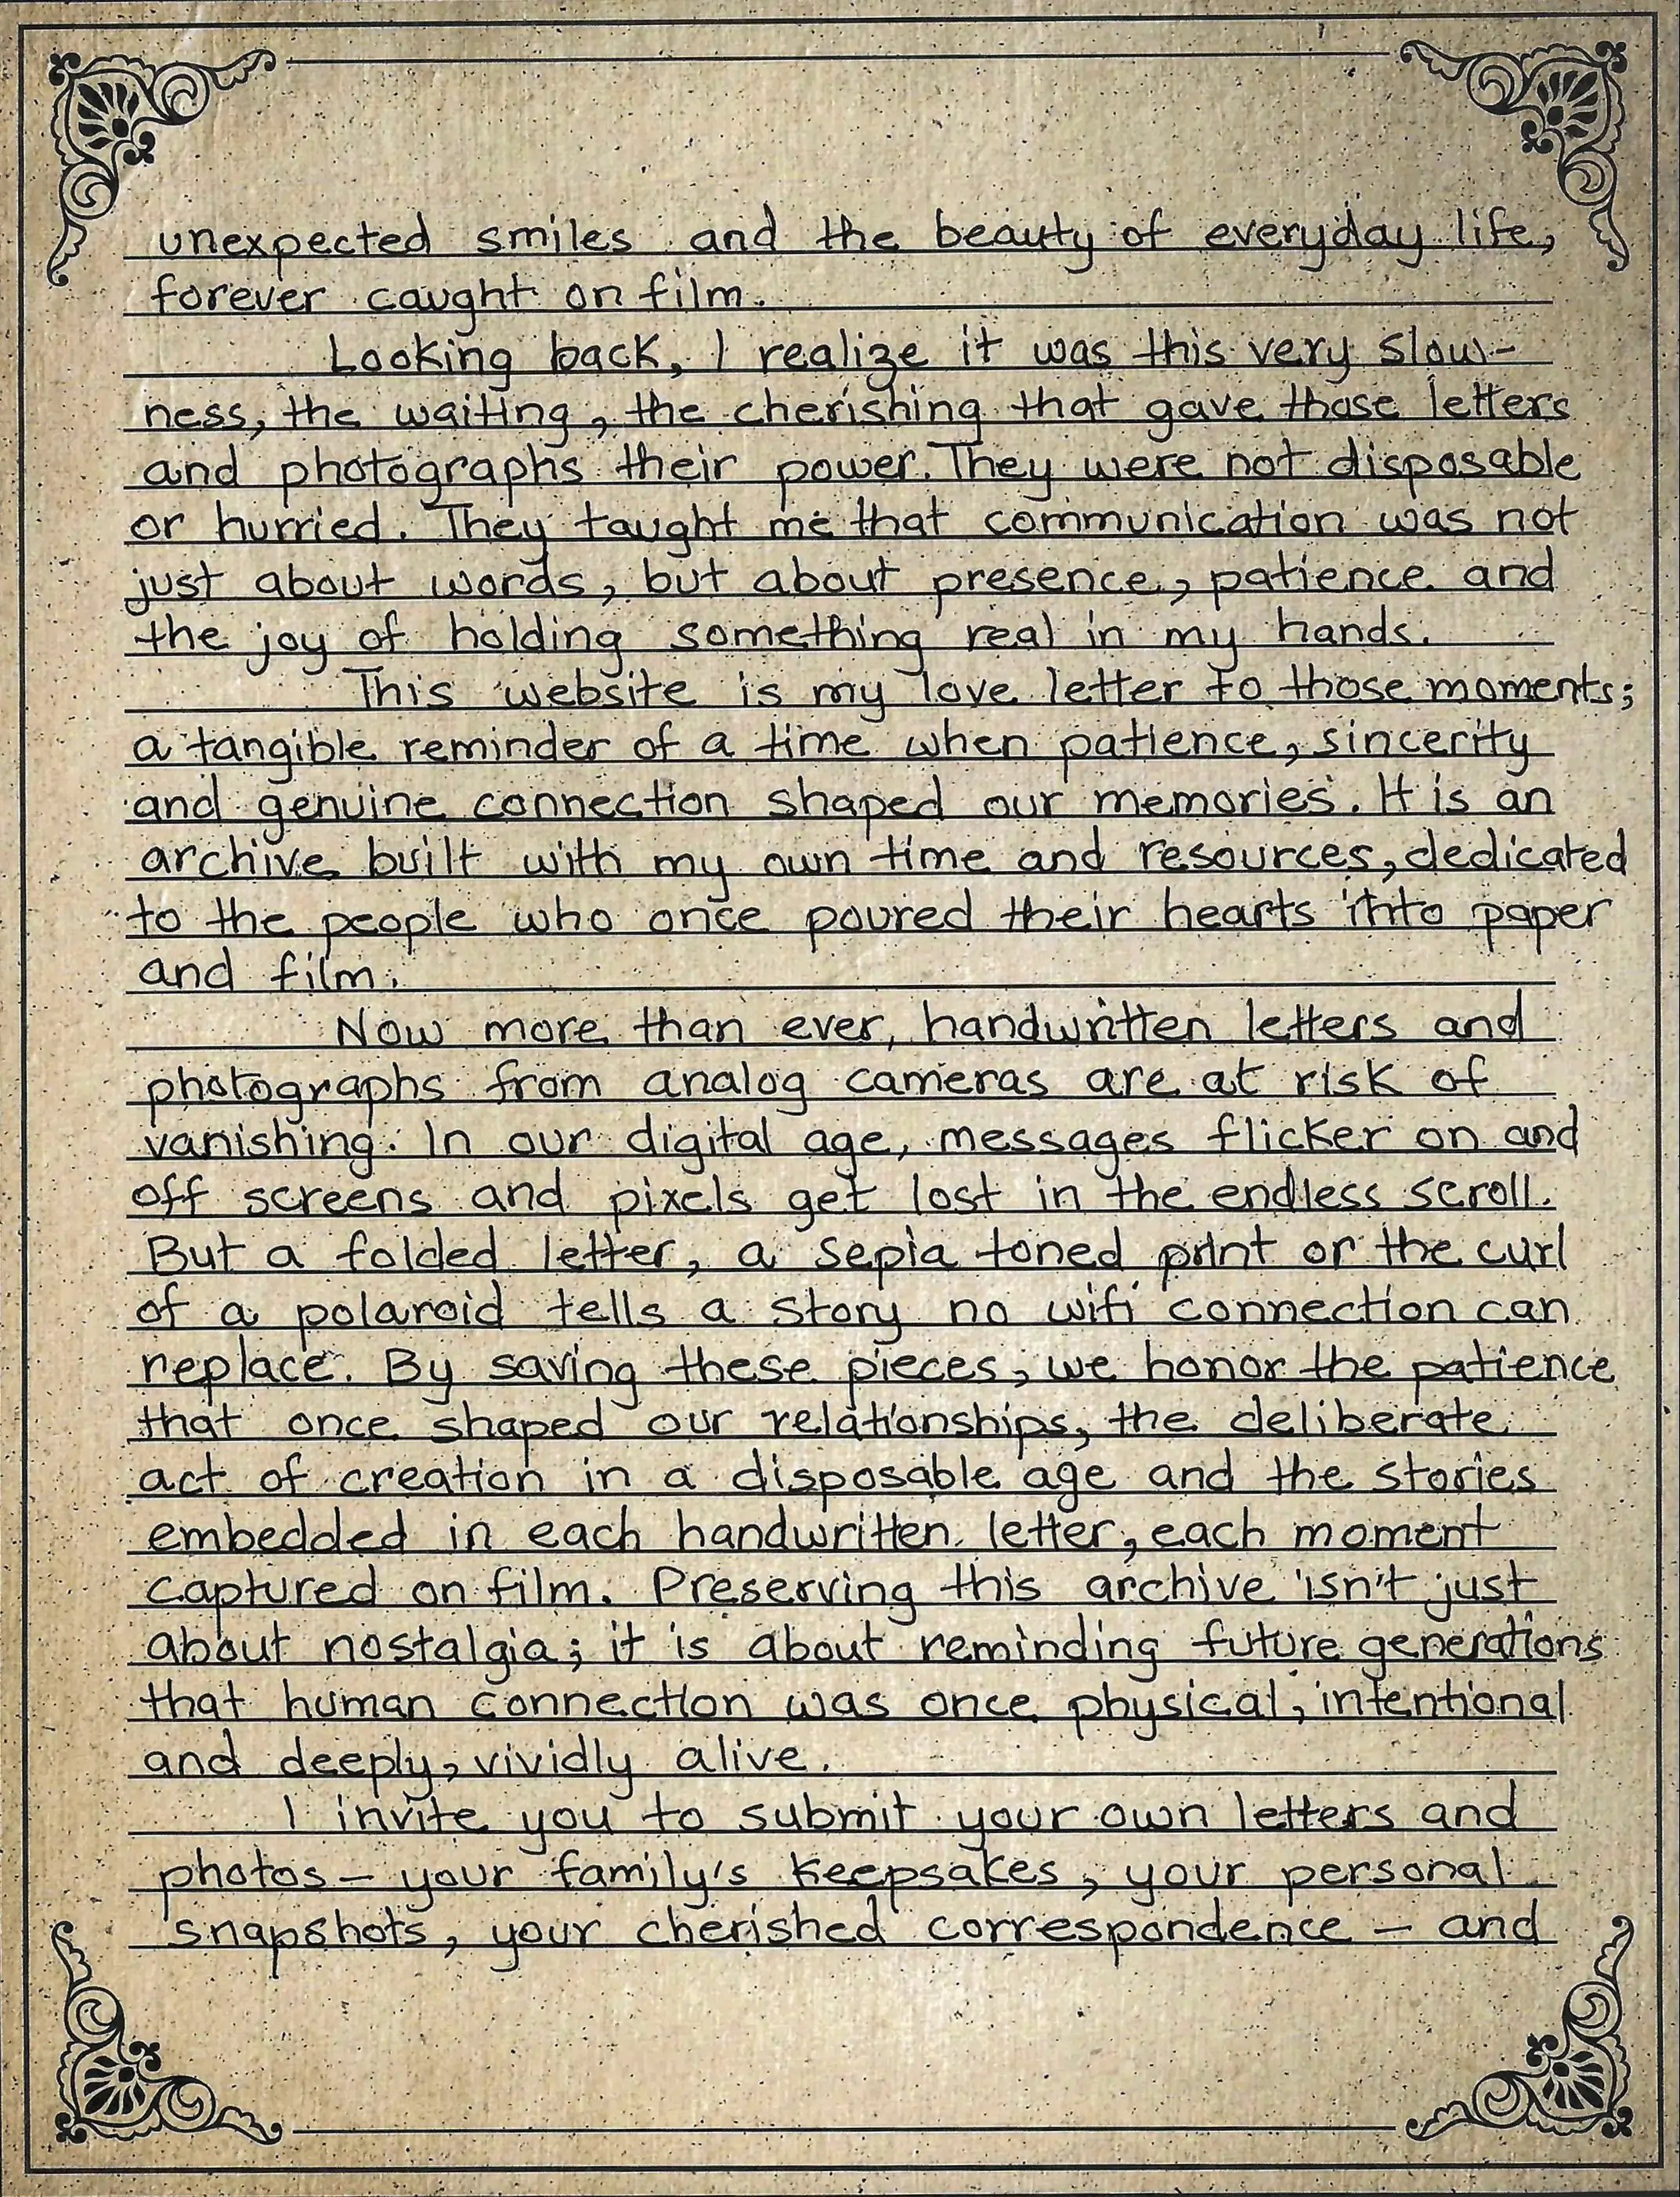 unexpected smiles and the beauty of everyday life,
forever caught on film.
Looking back, I realize it was this very slow-
ness, the waiting, the cherishing that gave those letters
and photographs their power. They were not disposable
or hurried. They taught me that communication was not
just about words, but about presence, patience and
the joy of holding something real in my hands.
This website is my love letter to those moments;
a tangible reminder of a time when patience, sincerity
and genuine connection shaped our memories. It is an
archive built with my own time and resources, dedicated
to the people who once poured their hearts into paper
and film.
Now more than ever, handwritten letters and
photographs from analog cameras are at risk of
vanishing. In our digital age, messages flicker on and
off screens and pixels get lost in the endless scroll.
But a folded letter, a sepia toned print or the curl
of a polaroid tells a story no wifi connection can
replace. By saving these pieces, we honor the patience
that once shaped our relationships, the deliberate
act of creation in a disposable age and the stories
embedded in each handwritten letter, each moment
captured on film. Preserving this archive isn't just
about nostalgia; it is about reminding future generations
that human connection was once physical, intentional
and deeply, vividly alive.
I invite you to submit your own letters and
photos – your family's keepsakes, your personal
snapshots, your cherished correspondence – and